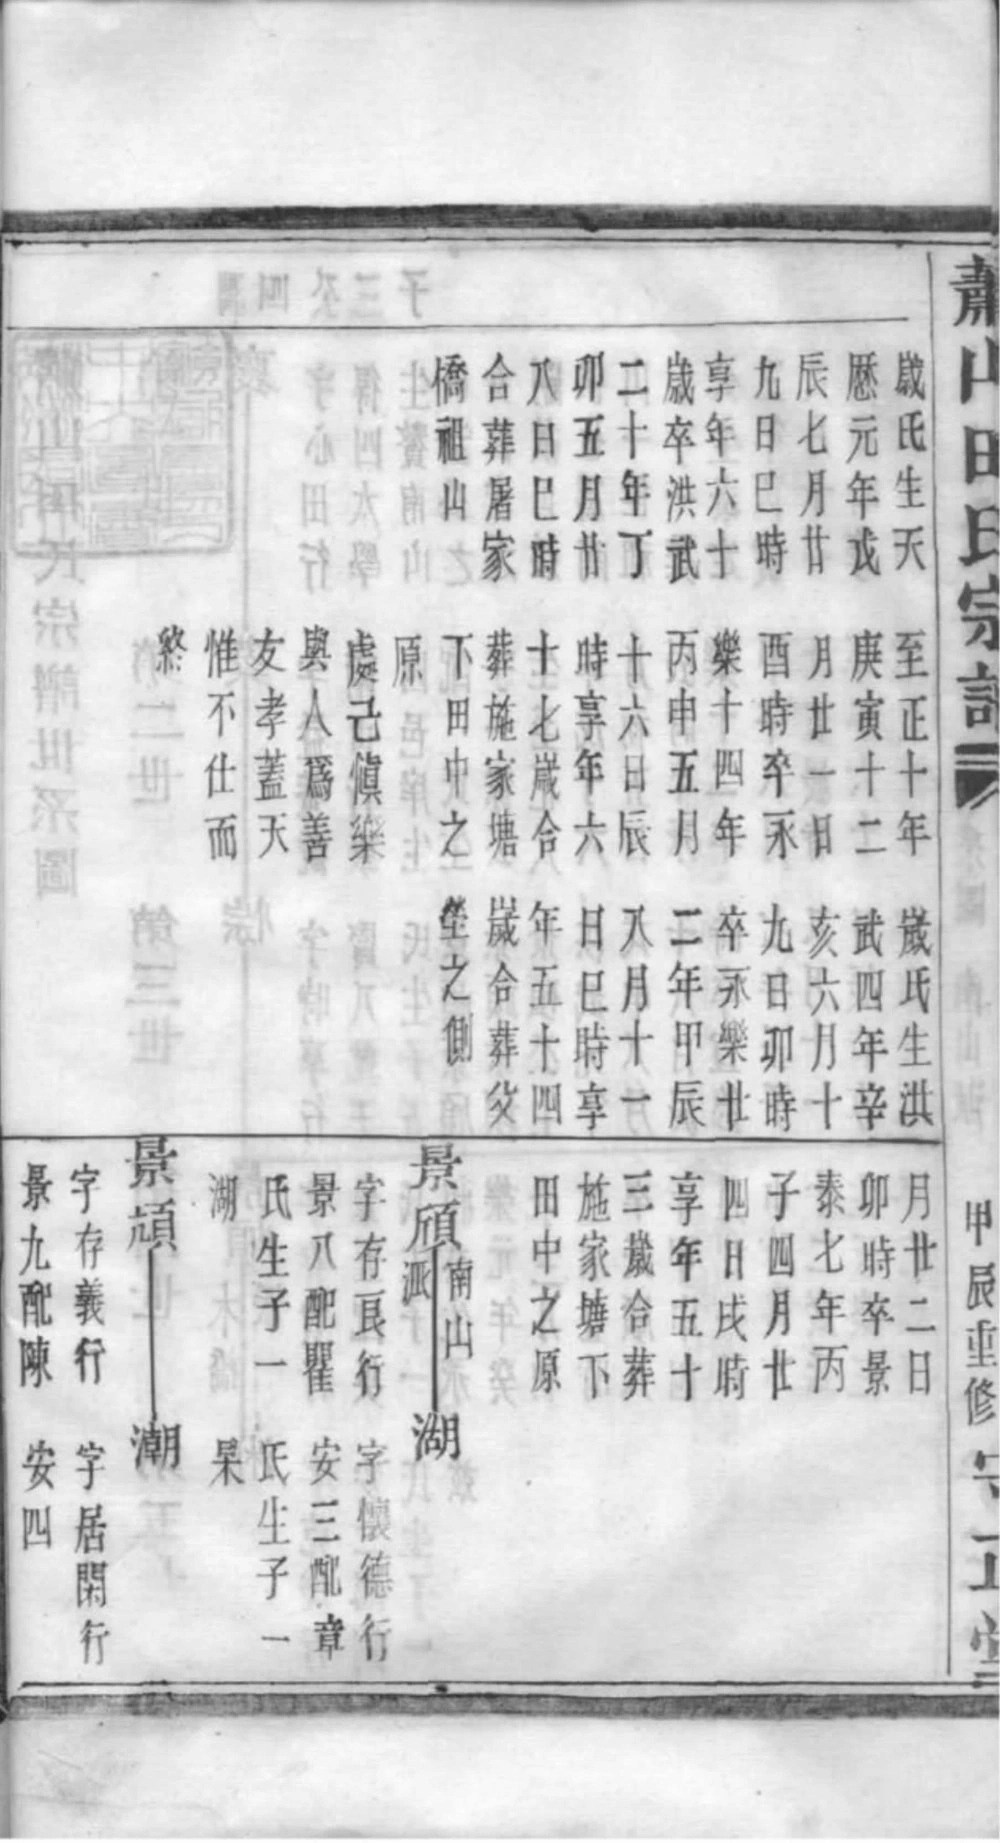 蕭山田氏宗譜
甲辰重修
歲氏生天
厯元年戊
辰七月廿
九日巳時
享年六十
歲卒洪武
二十年丁
卯五月廿
八日巳時
合葬屠家
橋祖山
至正十年
庚寅十二
月廿一日
酉時卒永
樂十四年
丙申五月
十六日辰
時享年六
十七歲合
葬施家塘
下田中之
原
處己愼樂
與人爲善
友孝蓋天
惟不仕而
終
歲氏生洪
武四年辛
亥六月十
九日卯時
卒永樂廿
二年甲辰
八月十一
日巳時享
年五十四
歲合葬父
塋之側
月廿二日
卯時卒景
泰七年丙
子四月廿
四日戌時
享年五十
三歲合葬
施家塘下
田中之原
景頎
南山
派
字存良行
景八配瞿
氏生子一
湖
湖
字懷德行
安三配章
氏生子一
杲
景頑
字存義行
景九配陳
潮
字居閑行
安四